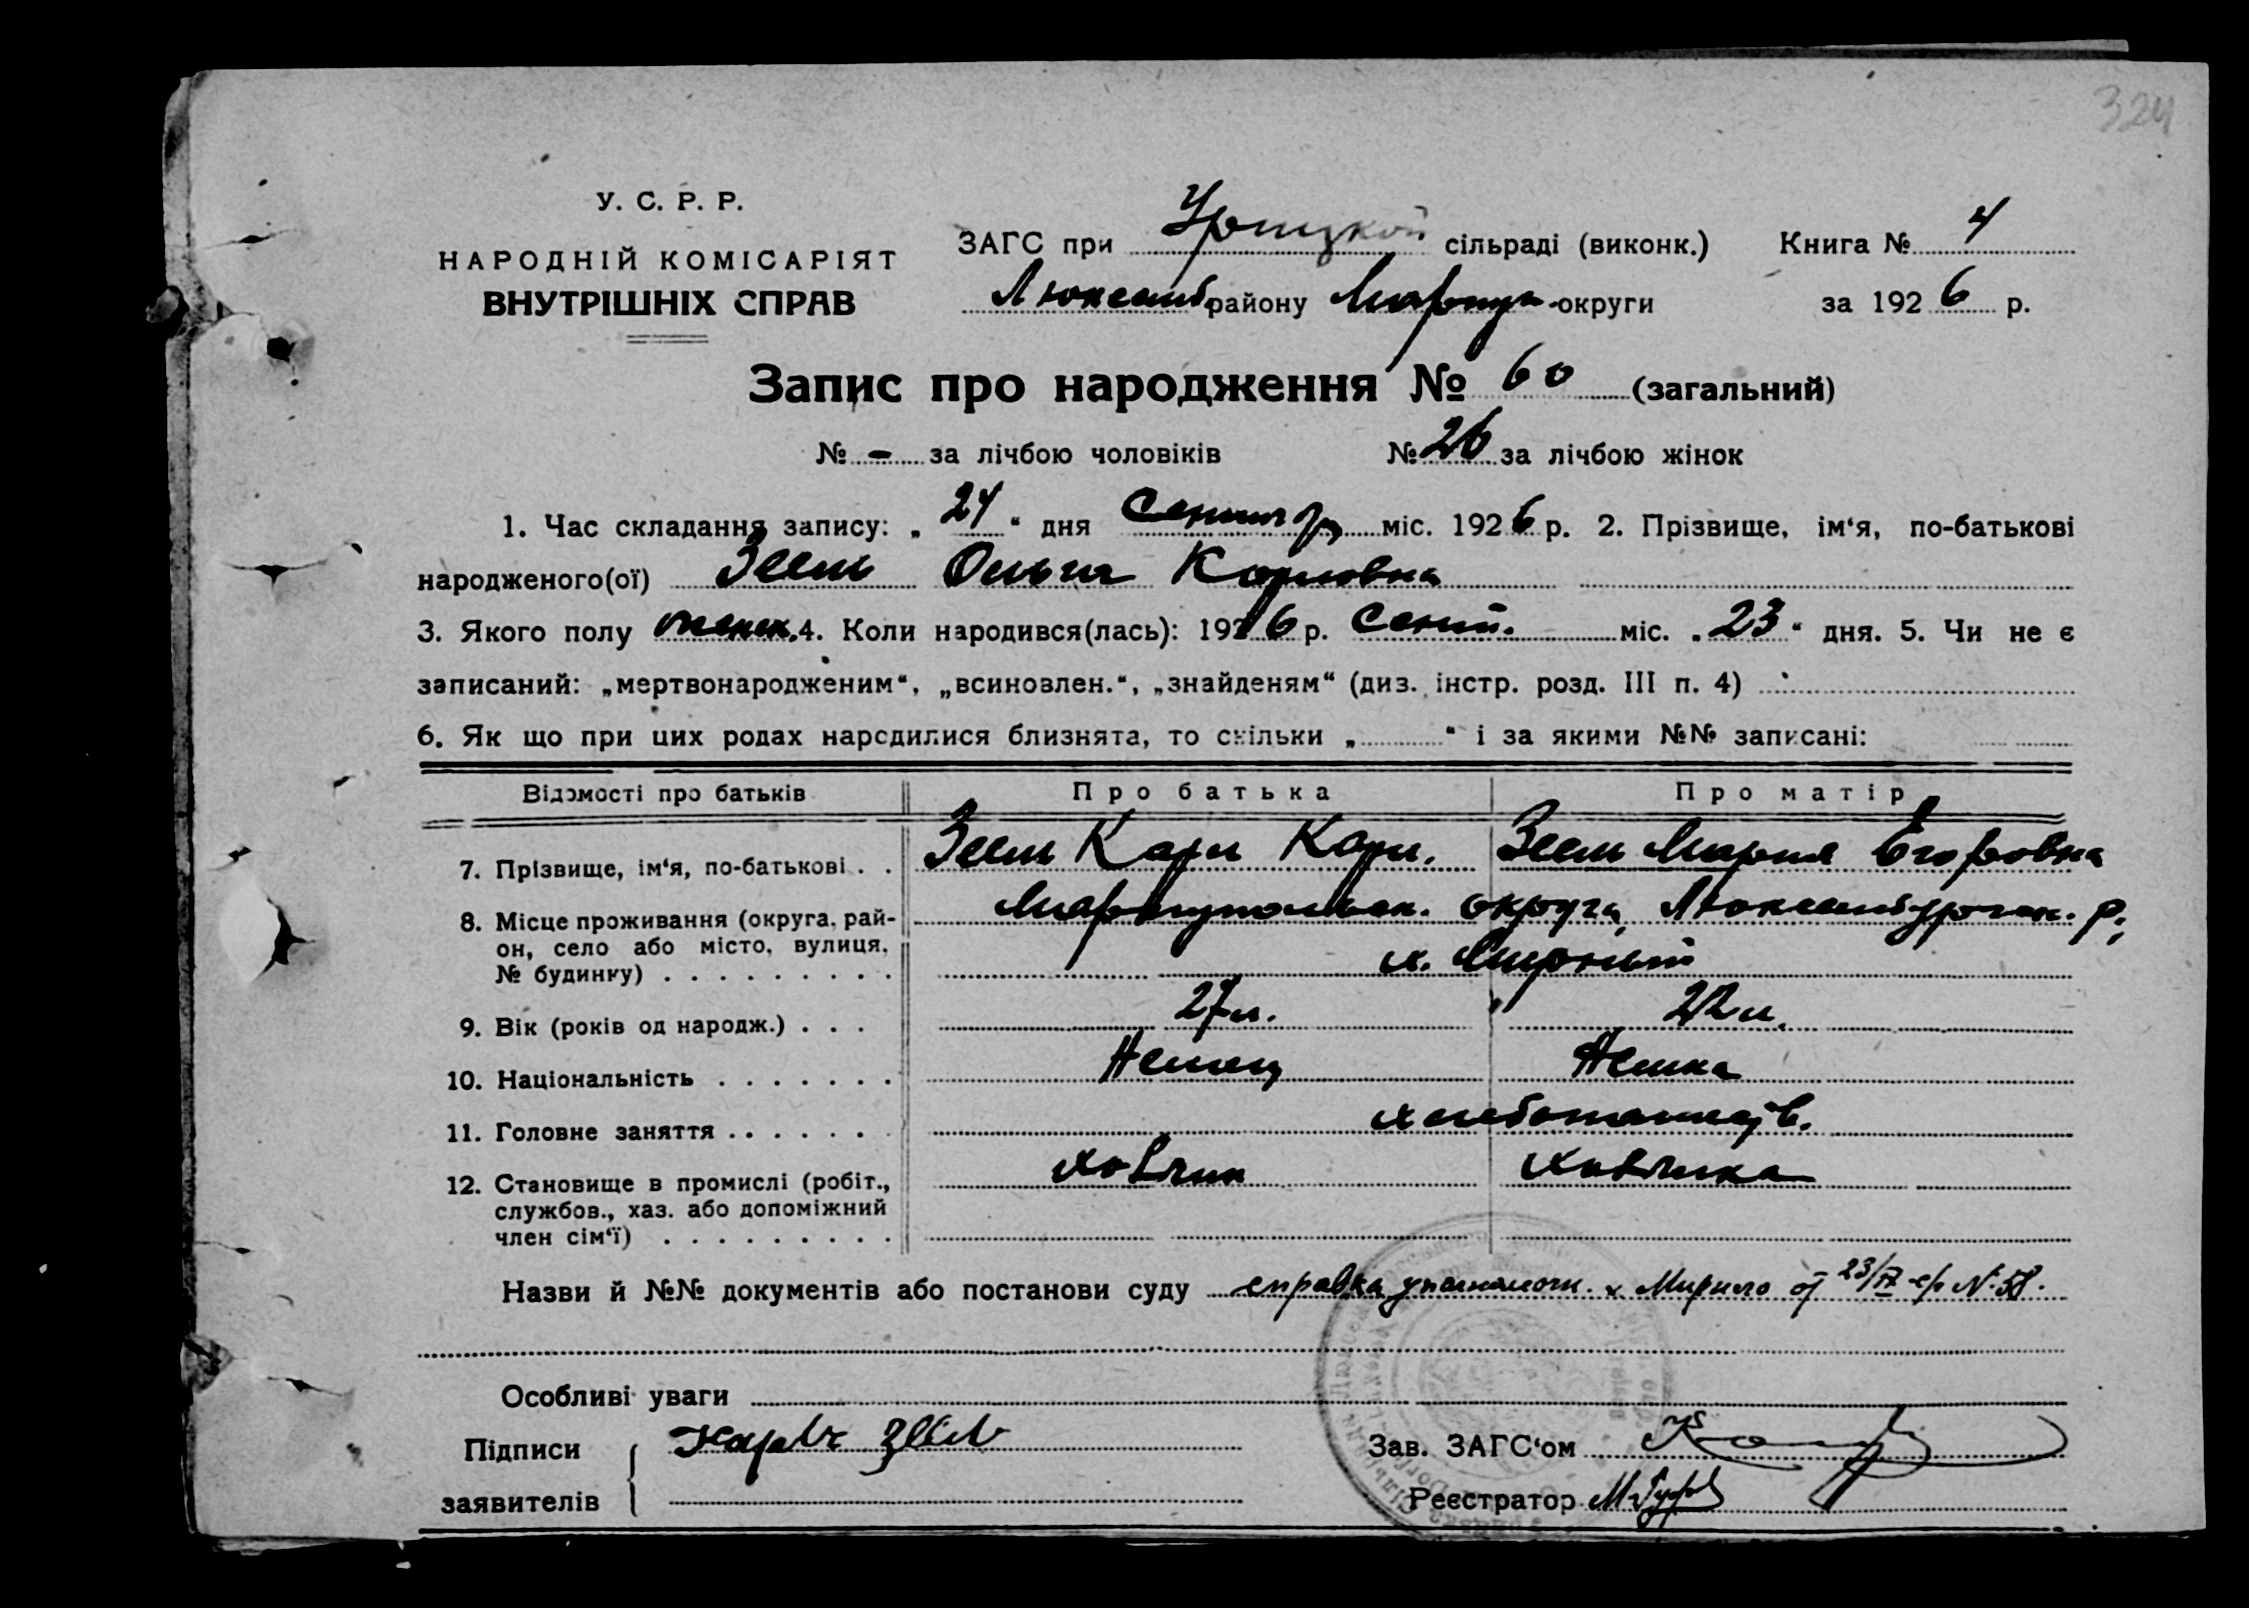 324
У. С. Р. Р.
НАРОДНІЙ КОМІСАРІЯТ
ВНУТРІШНІХ СПРАВ
ЗАГС при Урицкой сільраді (виконк.) Книга № 4
Люксемб району Мариуп округи за 1926 р.
Запис про народження № 60 (загальний)
№ - за лічбою чоловіків № 26 за лічбою жінок
1. Час складання запису: „24“ дня міс. 1926 р. 2. Прізвище, ім‘я, по-батькові
народженого(ої) Зеель Ольга Карловна
3. Якого полу женск. 4. Коли народився(лась): 1926 р. Сент. міс. „23“ дня. 5. Чи не є
записаний: „мертвонародженим“, „всиновлен.“, „знайденям“ (див. інстр. розд. III п. 4)
6. Як що при цих родах народилися близнята, то скільки „ “ і за якими №№ записані:
Відомості про батьків Про батька Про матір
7. Прізвище, ім‘я, по-батькові . . Зеель Карл Карл. Зеель Мария Егоровна
8. Місце проживання (округа, рай- Мариупольск. округа, Люксембургск. р.,
он, село або місто, вулиця, х. Мирный
№ будинку) . . . . . . . . .
9. Вік (років од народж.) . . . 27 л. 22 л.
10. Національність . . . . . . . Немец Немка
11. Головне заняття . . . . . . хлебопашеств.
12. Становище в промислі (робіт., хозяин хозяйка
службов., хаз. або допоміжний
член сім‘ї) . . . . . . . . .
Назви й №№ документів або постанови суду справка уполномоч. х. от 23/IX с/г N. 58.
Особливі уваги
Підписи Карл Зеель Зав. ЗАГС‘ом
заявителів Реєстратор